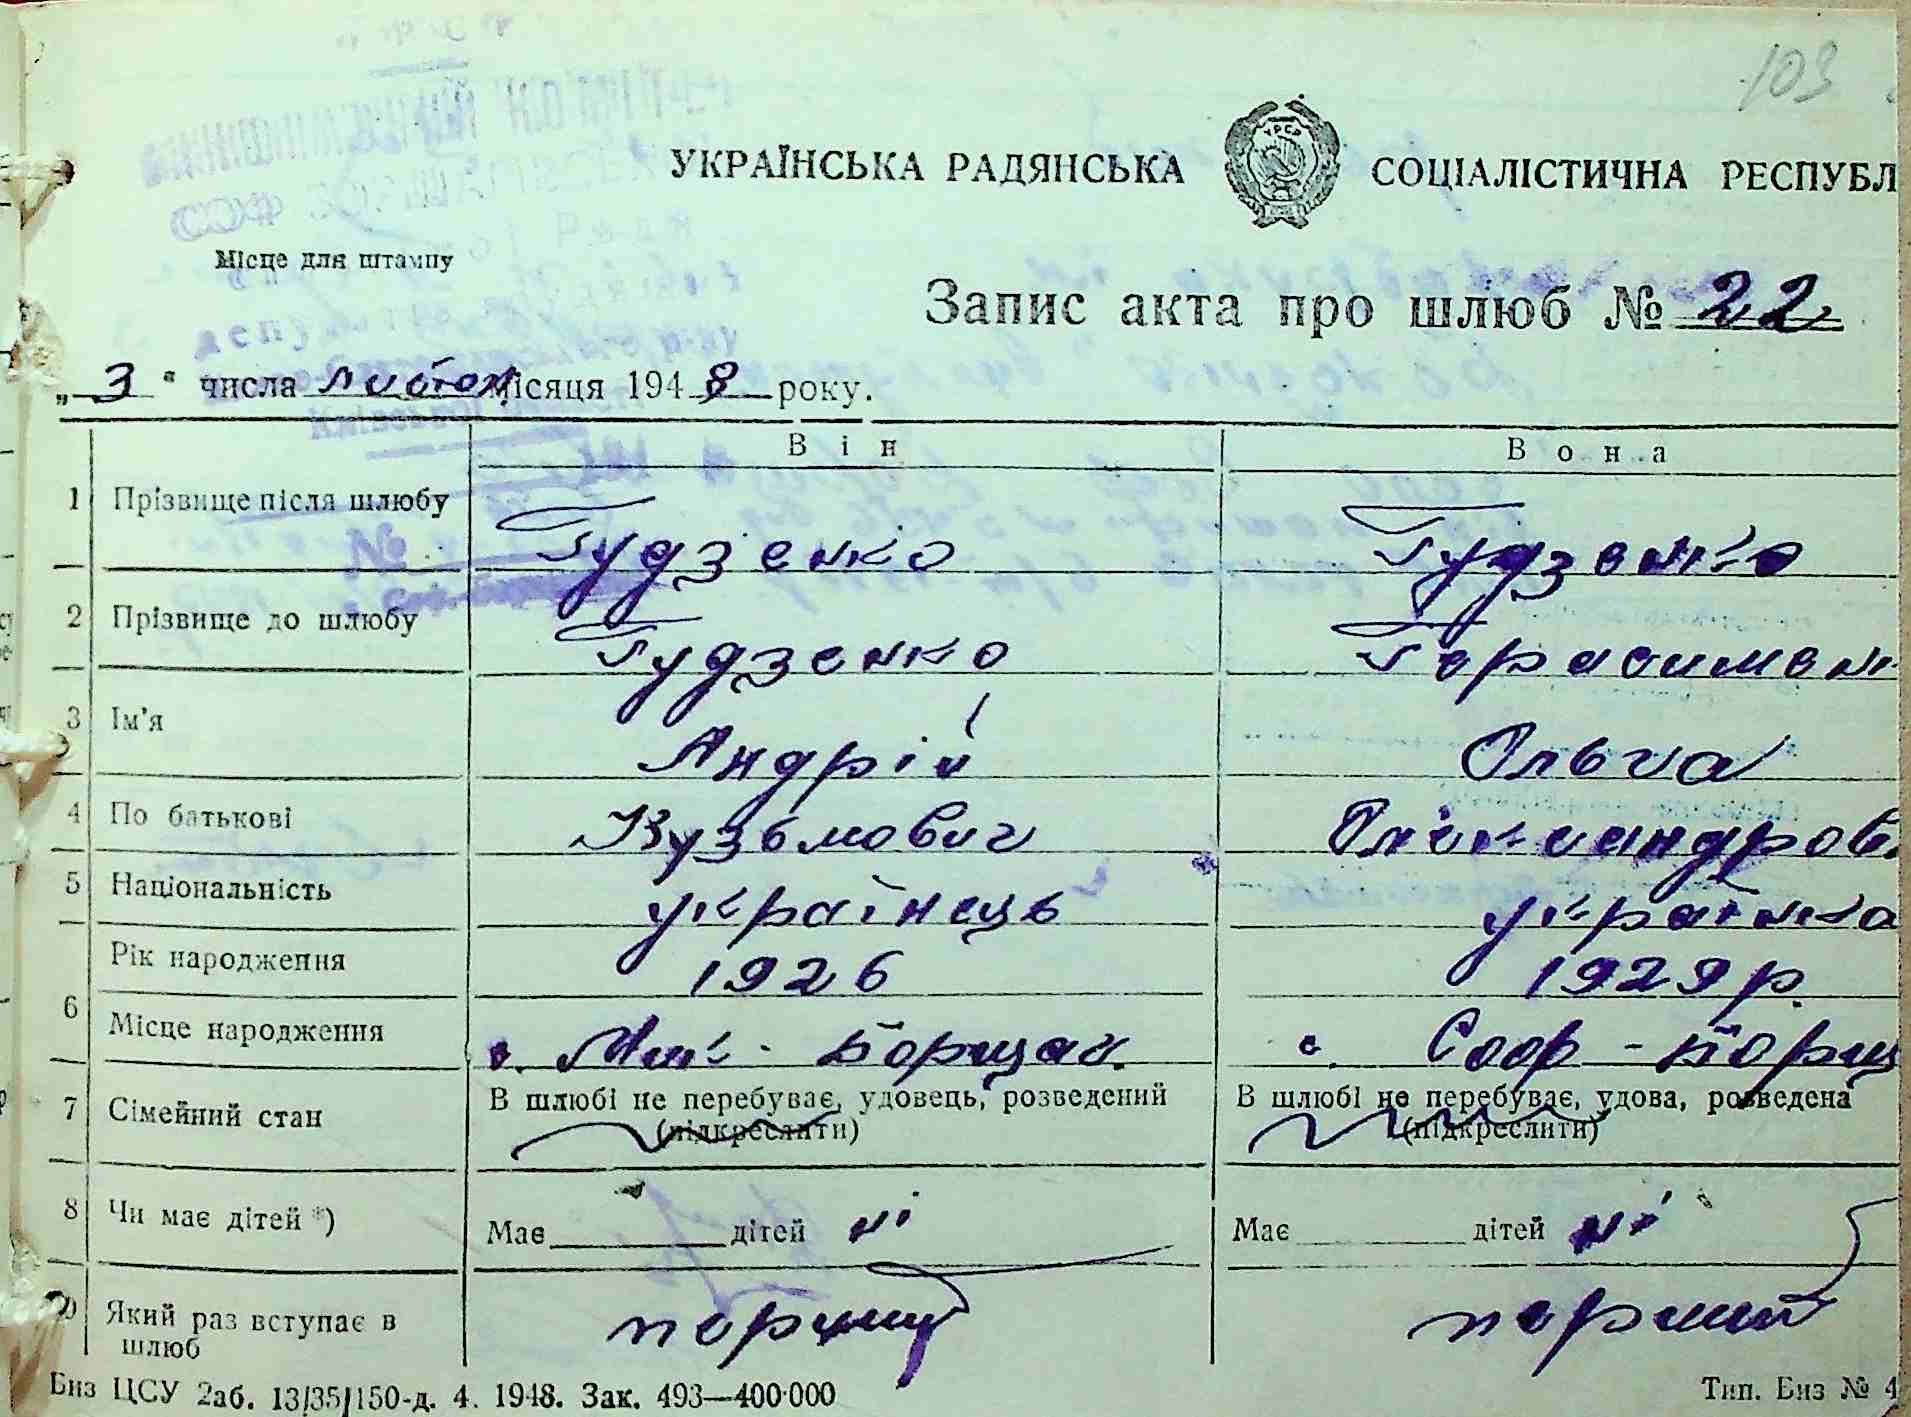 103
УКРАЇНСЬКА РАДЯНСЬКА СОЦІАЛІСТИЧНА РЕСПУБЛ
Місце для штампу
Запис акта про шлюб № 22
„3“ числа листоп місяця 1948 року.
Він Вона
1 Прізвище після шлюбу Гудзенко Гудзенко
2 Прізвище до шлюбу Гудзенко Герасимен
3 Ім'я Андрій Ольга
4 По батькові Кузьмович Олександров
5 Національність українець українка
6 Рік народження 1926 1929 р.
Місце народження с. Мик-Борщаг. с. Соф-Борщ
7 Сімейний стан В шлюбі не перебуває, удовець, розведений В шлюбі не перебуває, удова, розведена
(підкреслити) (підкреслити)
8 Чи має дітей *) Має дітей ні Має дітей ні
9 Який раз вступає в шлюб перший перший
Биз ЦСУ 2аб. 13/35/150-д. 4. 1948. Зак. 493—400·000 Тип. Биз № 4